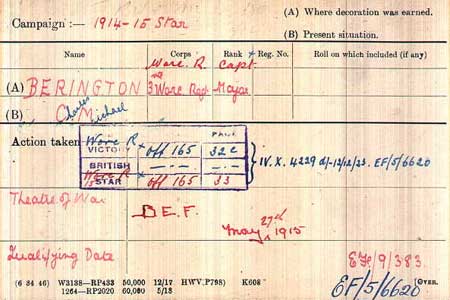 Campaign :— 1914-15 Star
(A) Where decoration was earned.
(B) Present situation.
Name Corps Rank Reg. No. Roll on which included (if any)
Worc. R. Capt
(A) BERINGTON 3 Worc Regt Major
(B) Charles Michael
Action taken
PAGE
Worc R × off 165 32c
VICTORY
BRITISH —"— —"—
Worc R × off 165 33
STAR
IV. X. 4229 d/-12/12/23. EF/5/6620
Theatre of War
B.E.F.
May 27th 1915
Qualifying Date
EF/9/383.
(6 34 46) W3138—RP433 50,000 12/17 HWV(P798) K608
1264—RP2020 60,000 5/18
EF/5/6620
OVER.